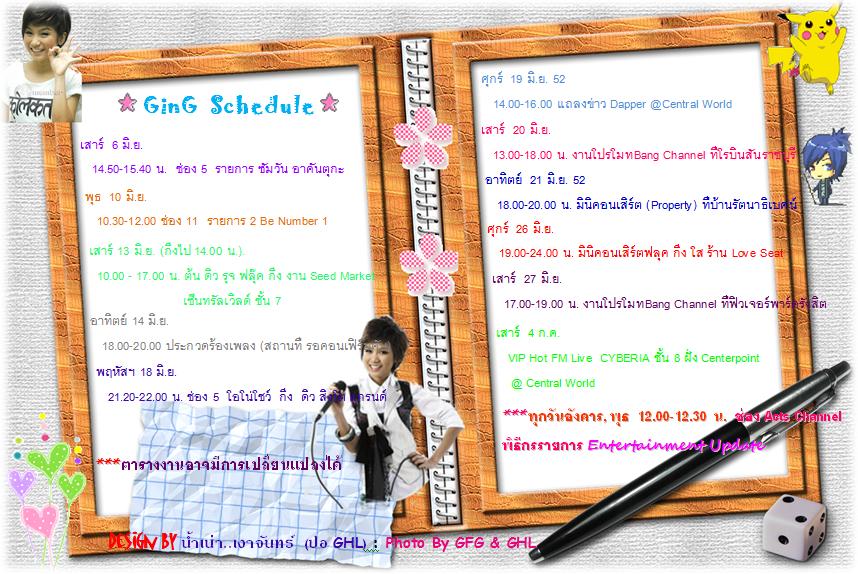 GinG Schedule
เสาร์ 6 มิ.ย.
14.50-15.40 น. ช่อง 5 รายการ ชัมวัน อาคันตุกะ
พุธ 10 มิ.ย.
10.30-12.00 ช่อง 11 รายการ 2 Be Number 1
เสาร์ 13 มิ.ย. (กิ่งไป 14.00 น.)
10.00 - 17.00 น. ต้น ดิว รุจ ฟลุ๊ค กิ่ง งาน Seed Market
เซ็นทรัลเวิลด์ ชั้น 7
อาทิตย์ 14 มิ.ย.
18.00-20.00 ประกวดร้องเพลง (สถานที่ รอคอนเฟิร์ม)
พฤหัสฯ 18 มิ.ย.
21.20-22.00 น. ช่อง 5 โอโน่โชว์ กิ่ง ดิว
***ตารางงานอาจมีการเปลี่ยนแปลงได้
ศุกร์ 19 มิ.ย. 52
14.00-16.00 แถลงข่าว Dapper @Central World
เสาร์ 20 มิ.ย.
13.00-18.00 น. งานโปรโมทBang Channel ที่โรบินสันราชบุรี
อาทิตย์ 21 มิ.ย. 52
18.00-20.00 น. มินิคอนเสิร์ต (Property) ที่บ้านรัตนาธิเบศน์
ศุกร์ 26 มิ.ย.
19.00-24.00 น. มินิคอนเสิร์ตฟลุค กิ่ง ใส ร้าน Love Seat
เสาร์ 27 มิ.ย.
17.00-19.00 น. งานโปรโมทBang Channel ที่ฟิวเจอร์พาร์ครังสิต
เสาร์ 4 ก.ค.
VIP Hot FM Live CYBERIA ชั้น 8 ฝั่ง Centerpoint
@ Central World
***ทุกวันอังคาร, พุธ 12.00-12.30 น. ช่อง Acts Channel
พิธีกรรายการ Entertainment Update
DESIGN BY น้ำเน่า..เงาจันทร์ (ปอ GHL) : Photo By GFG & GHL